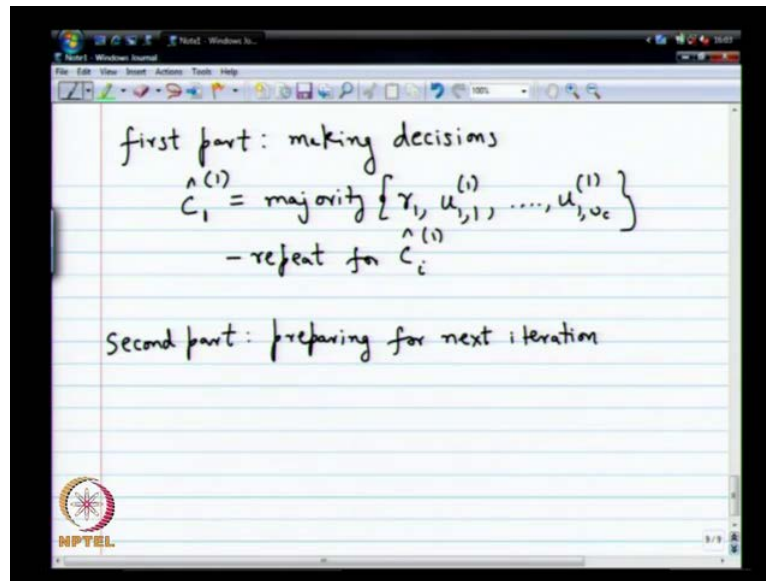 Note1 - Windows Jo...
Note1 - Windows Journal
File Edit View Insert Actions Tools Help
100%
first part: making decisions
ĉ₁⁽¹⁾ = majority { r₁, u₁,₁⁽¹⁾, ...., u₁,w_c⁽¹⁾ }
- repeat for ĉᵢ⁽¹⁾
Second part: preparing for next iteration
NPTEL
9/9